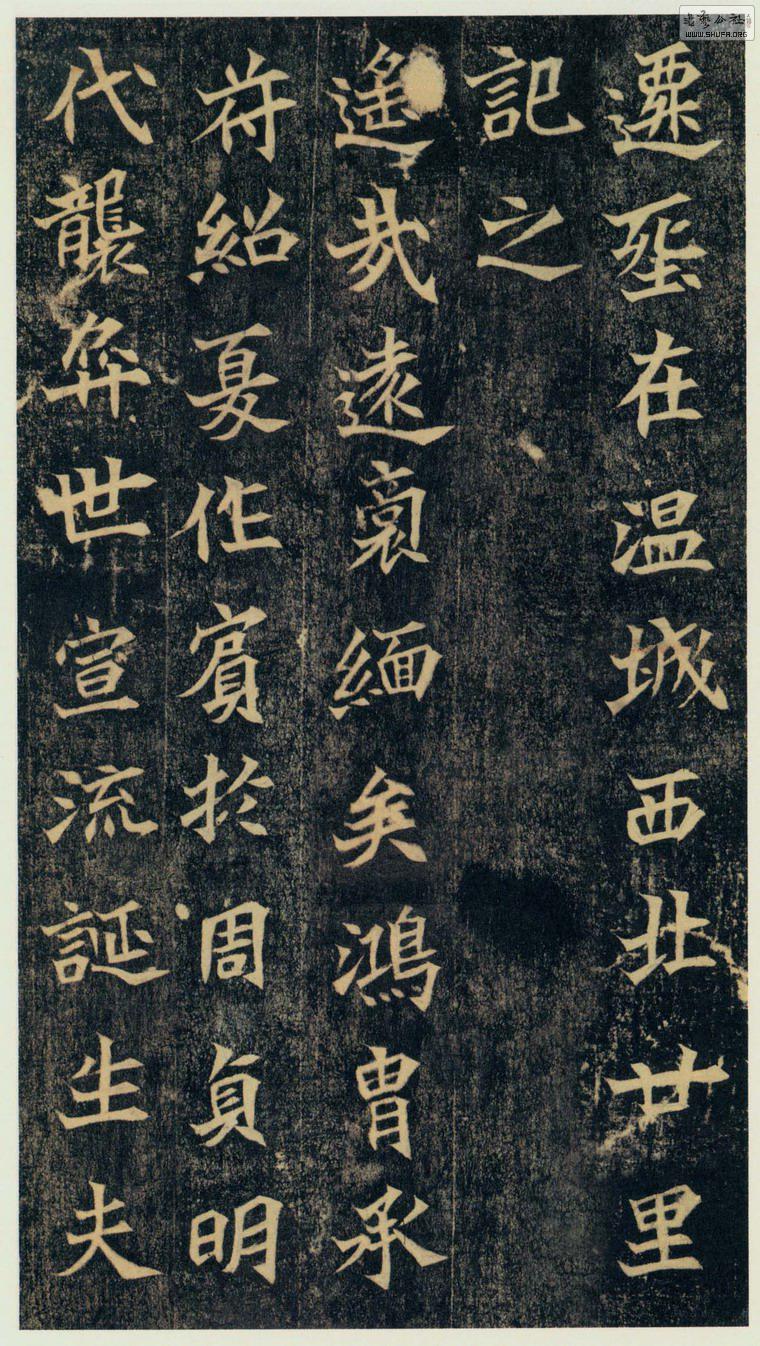 書藝公社
WWW.SHUFA.ORG
遷塟在温城西北廿里
記之
遙哉遠裔緬矣鴻胄承
苻紹夏作賓於周貞明
代襲弈世宣流誕生夫